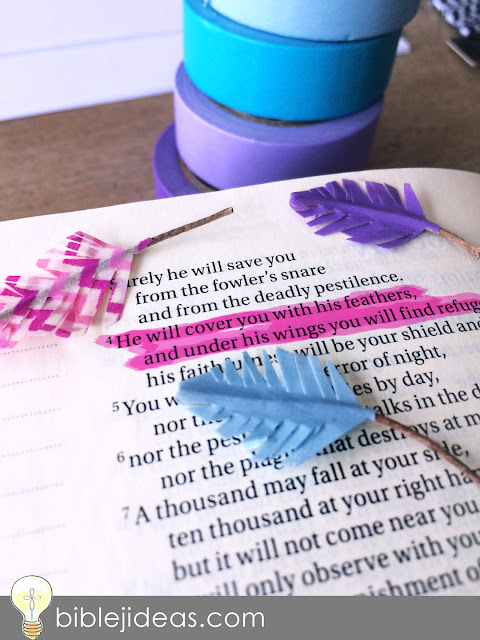 urely he will save you
from the fowler's snare
and from the deadly pestilence.
4 He will cover you with his feathers,
and under his wings you will find refuge
his will be your shield and
5 You error of night,
nor by day,
6 nor the in the
nor the that destroys at
7 A thousand may fall at your side,
ten thousand at your right
but it will not come near you
will only observe with
of
biblejideas.com